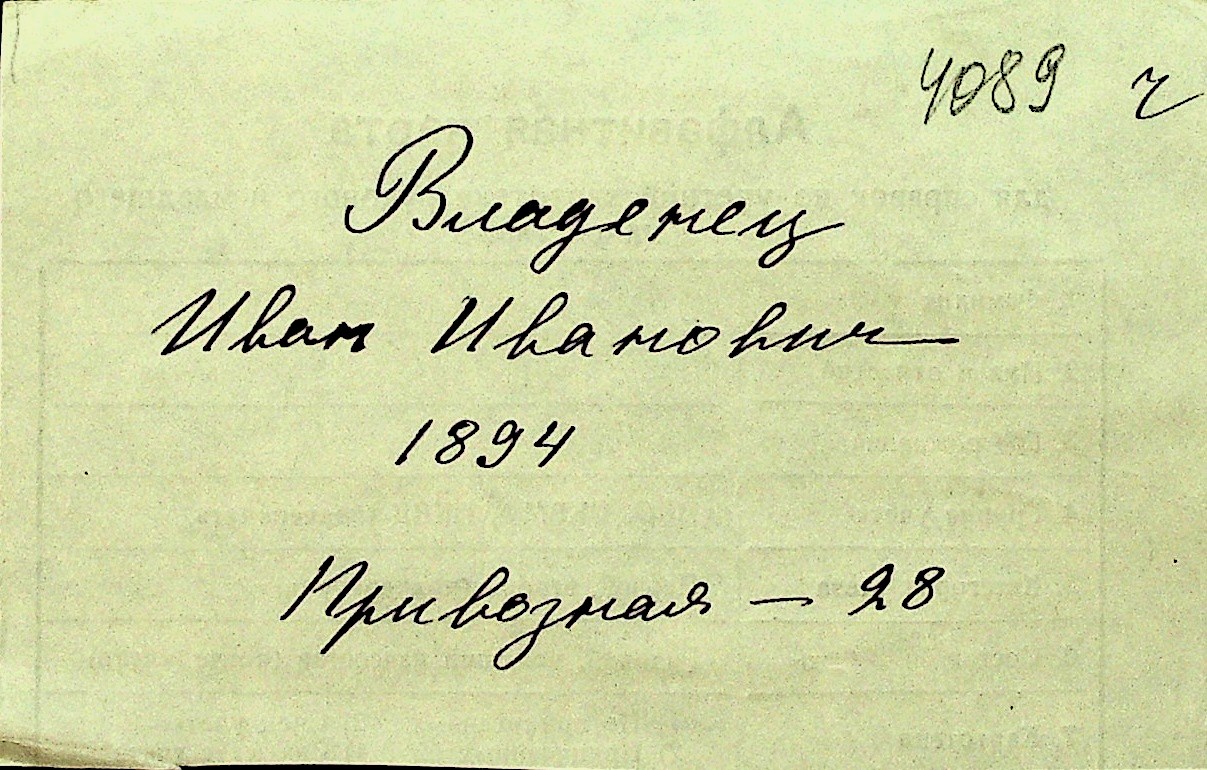 4089 ч
Владенец
Иван Иванович
1894
Привозная — 28